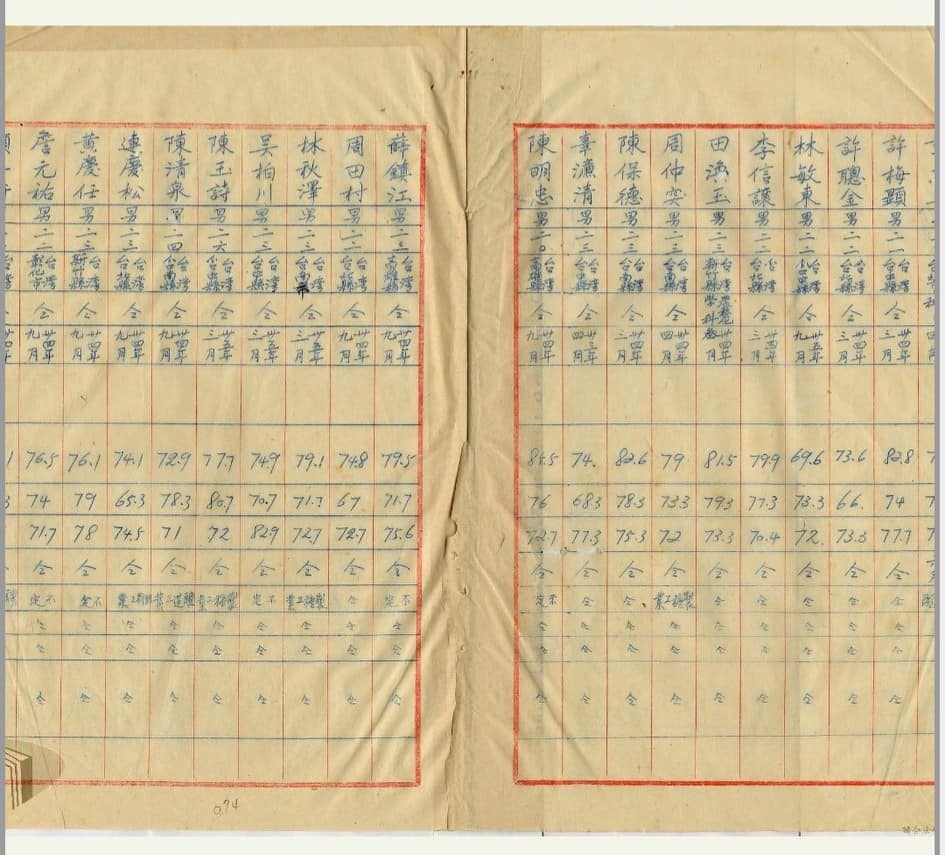 許梅顯 男 二二 台灣台北縣 仝 卅四年三月 82.8 74 77.7 仝 仝 仝 仝 仝
許聰金 男 二二 台灣 仝 卅四年三月 73.6 66. 73.3 仝 仝 仝 仝 仝
林敏東 男 台灣 仝 卅五年九月 69.6 73.3 72. 仝 仝 仝 仝 仝
李信讓 男 台灣台北縣 仝 卅四年三月 79.9 77.3 70.4 仝 仝 仝 仝 仝
田 玉 男 二三 台灣新竹縣 農藝學科 卅四年三月 81.5 79.3 73.3 仝 仝 仝 仝 仝
周仲奕 男 二三 台灣台南縣 仝 卅四年四月 79 73.3 72 仝 製糖工業 仝 仝 仝
陳保德 男 二三 台灣台北縣 仝 卅四年三月 82.6 78.3 75.3 仝 仝 仝 仝 仝
濂清 男 二三 台灣 仝 卅三年四月 74. 68.3 77.3 仝 仝 仝 仝 仝
陳明忠 男 二〇 台灣高雄縣 仝 卅四年九月 76 72.7 仝 不定 仝 仝 仝
薛鎮江 男 二三 台灣高雄縣 仝 卅四年九月 79.5 71.7 75.6 仝 不定 仝 仝 仝
周田村 男 二二 台灣 仝 卅四年九月 74.8 67 72.7 仝 仝 仝 仝 仝
林秋澤 男 二三 台灣台南市 仝 卅五年三月 79.1 71.7 72.7 仝 製糖工業 仝 仝 仝
吳柏川 男 二三 台灣 仝 卅五年三月 74.9 70.7 82.9 仝 不定 仝 仝 仝
陳玉詩 男 二六 台灣 仝 卅五年三月 77.7 80.7 72 仝 製糖工業 仝 仝 仝
陳清泉 男 二四 台灣台南縣 仝 卅四年九月 72.9 78.3 71 仝 釀造工業 仝 仝 仝
連慶松 男 二三 台灣台北縣 仝 卅四年九月 74.1 65.3 74.5 仝 工業 仝 仝 仝
黃慶任 男 二三 台灣新竹縣 仝 卅四年九月 76.1 79 78 仝 不定 仝 仝 仝
詹元祐 男 二二 台灣彰化市 仝 卅四年九月 76.5 74 71.7 仝 不定 仝 仝 仝
074